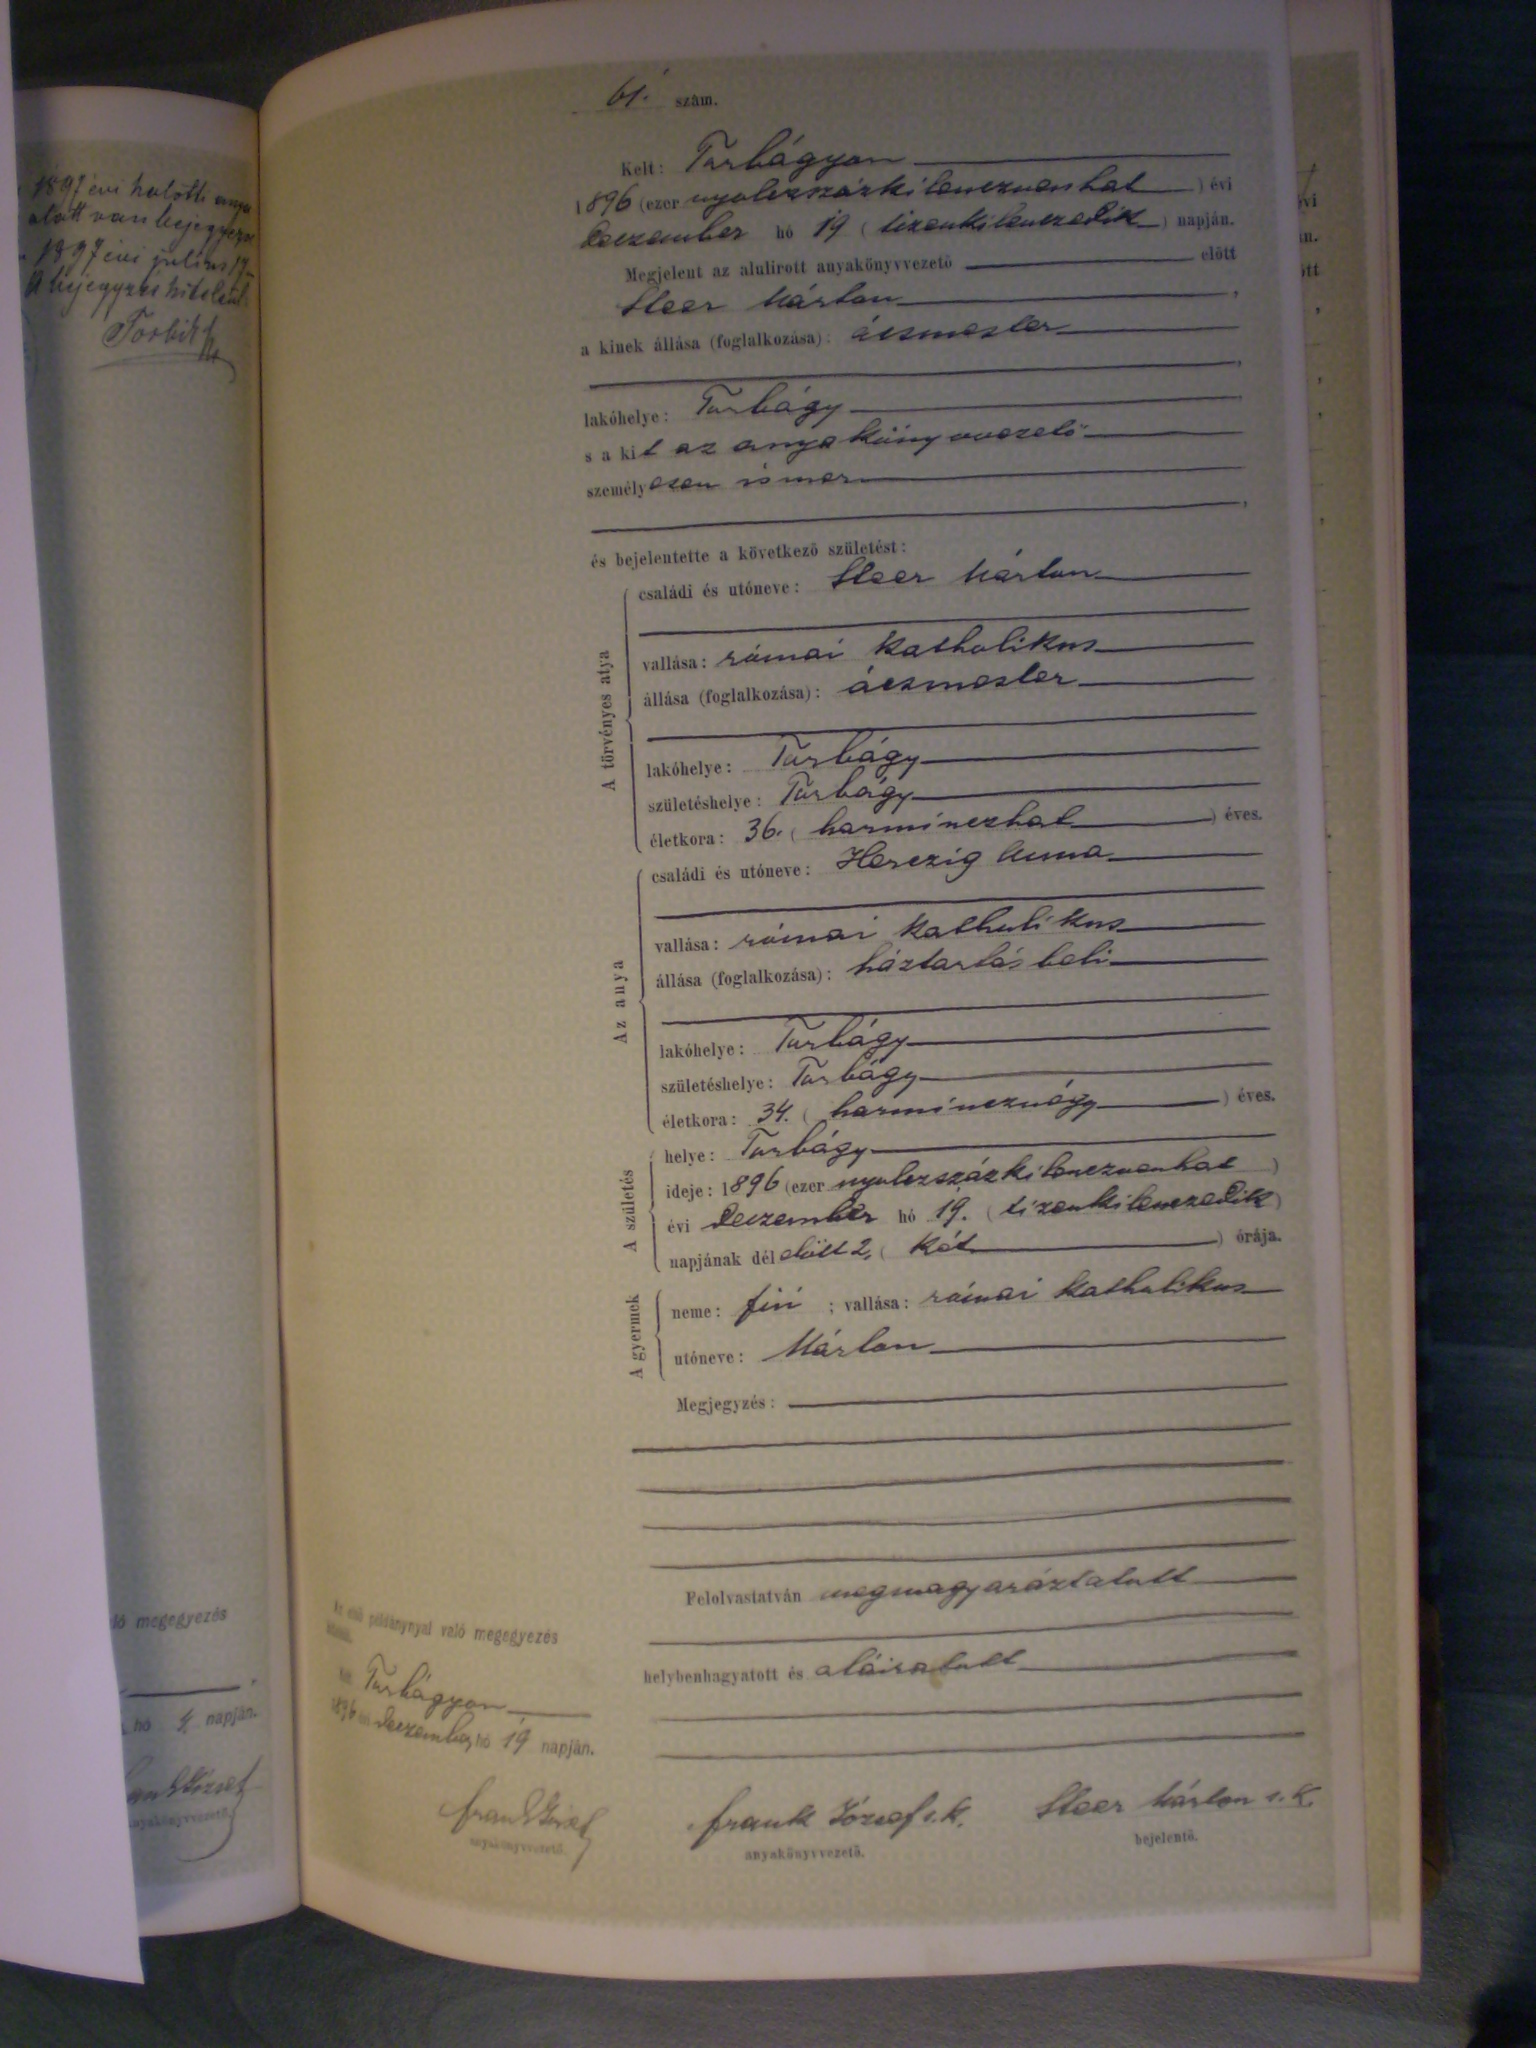 1897 évi halotti anya
alatt van bejegyezve
1897 évi július 17
A bejegyzés hiteléül
61. szám.
Kelt: Torbágyon
1896 (ezer nyolczszázkilenczvenhat) évi
deczember hó 19 (tizenkilenczedik) napján.
Megjelent az alulirott anyakönyvvezető előtt
Steer Márton,
a kinek állása (foglalkozása): ácsmester
,
lakóhelye: Torbágy
s a kit az anyakönyvvezető
személyesen ismer
,
és bejelentette a következő születést:
A törvényes atya
családi és utóneve: Steer Márton
vallása: római katholikus
állása (foglalkozása): ácsmester
lakóhelye: Torbágy
születéshelye: Torbágy
életkora: 36. (harminczhat) éves.
Az anya
családi és utóneve: Herczig Anna
vallása: római katholikus
állása (foglalkozása): háztartásbeli
lakóhelye: Torbágy
születéshelye: Torbágy
életkora: 34. (harmincznégy) éves.
A születés
helye: Torbágy
ideje: 1896 (ezer nyolczszázkilenczvenhat)
évi deczember hó 19. (tizenkilenczedik)
napjának délelőtt 2, (két) órája.
A gyermek
neme: fiú; vallása: római katholikus
utóneve: Márton
Megjegyzés:
Felolvastatván megmagyaráztatott
helybenhagyatott és aláiratott
Az első példánynyal való megegyezés
Kelt Torbágyon
1896 évi deczember hó 19 napján.
Frank József
anyakönyvvezető.
Frank József s. k.
anyakönyvvezető.
Steer Márton s. k.
bejelentő.
ló megegyezés
hó 4 napján.
ank József
anyakönyvvezető